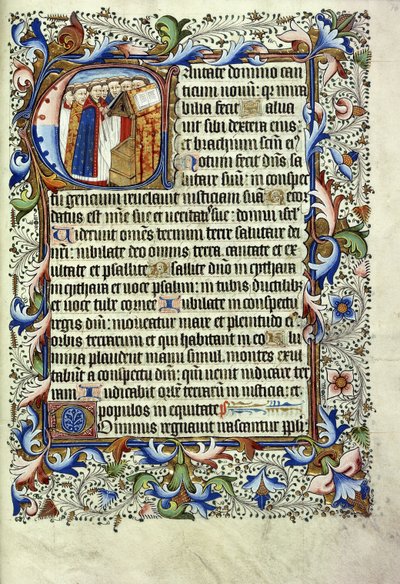 Cantate domino can
ticum novum: qr mira
bilia fecit Salva
vit sibi dextera eius:
et brachium scm ei
Notum fecit dns sa
lutare suu: in conspec
tu gencium revelavit iusticiam sua Recor
datus est mie sue et veritatis sue: domui isrl
Viderunt omes termini terre salutare dei
nri: iubilate deo omnis terra. cantate et ex
ultate et psallite Psallite dno in cythara
in cythara et voce psalmi: in tubis ductilib
et voce tube cornee Iubilate in conspectu
regis dni: moveatur mare et plenitudo ei
orbis terrarum et qui habitant in eo Flu
mina plaudent manu simul. montes exul
tabunt a conspectu dni: qm venit iudicare ter
ram Iudicabit orbe terrarum in iusticia: et
populos in equitate
Dominus regnavit irascantur ppli: